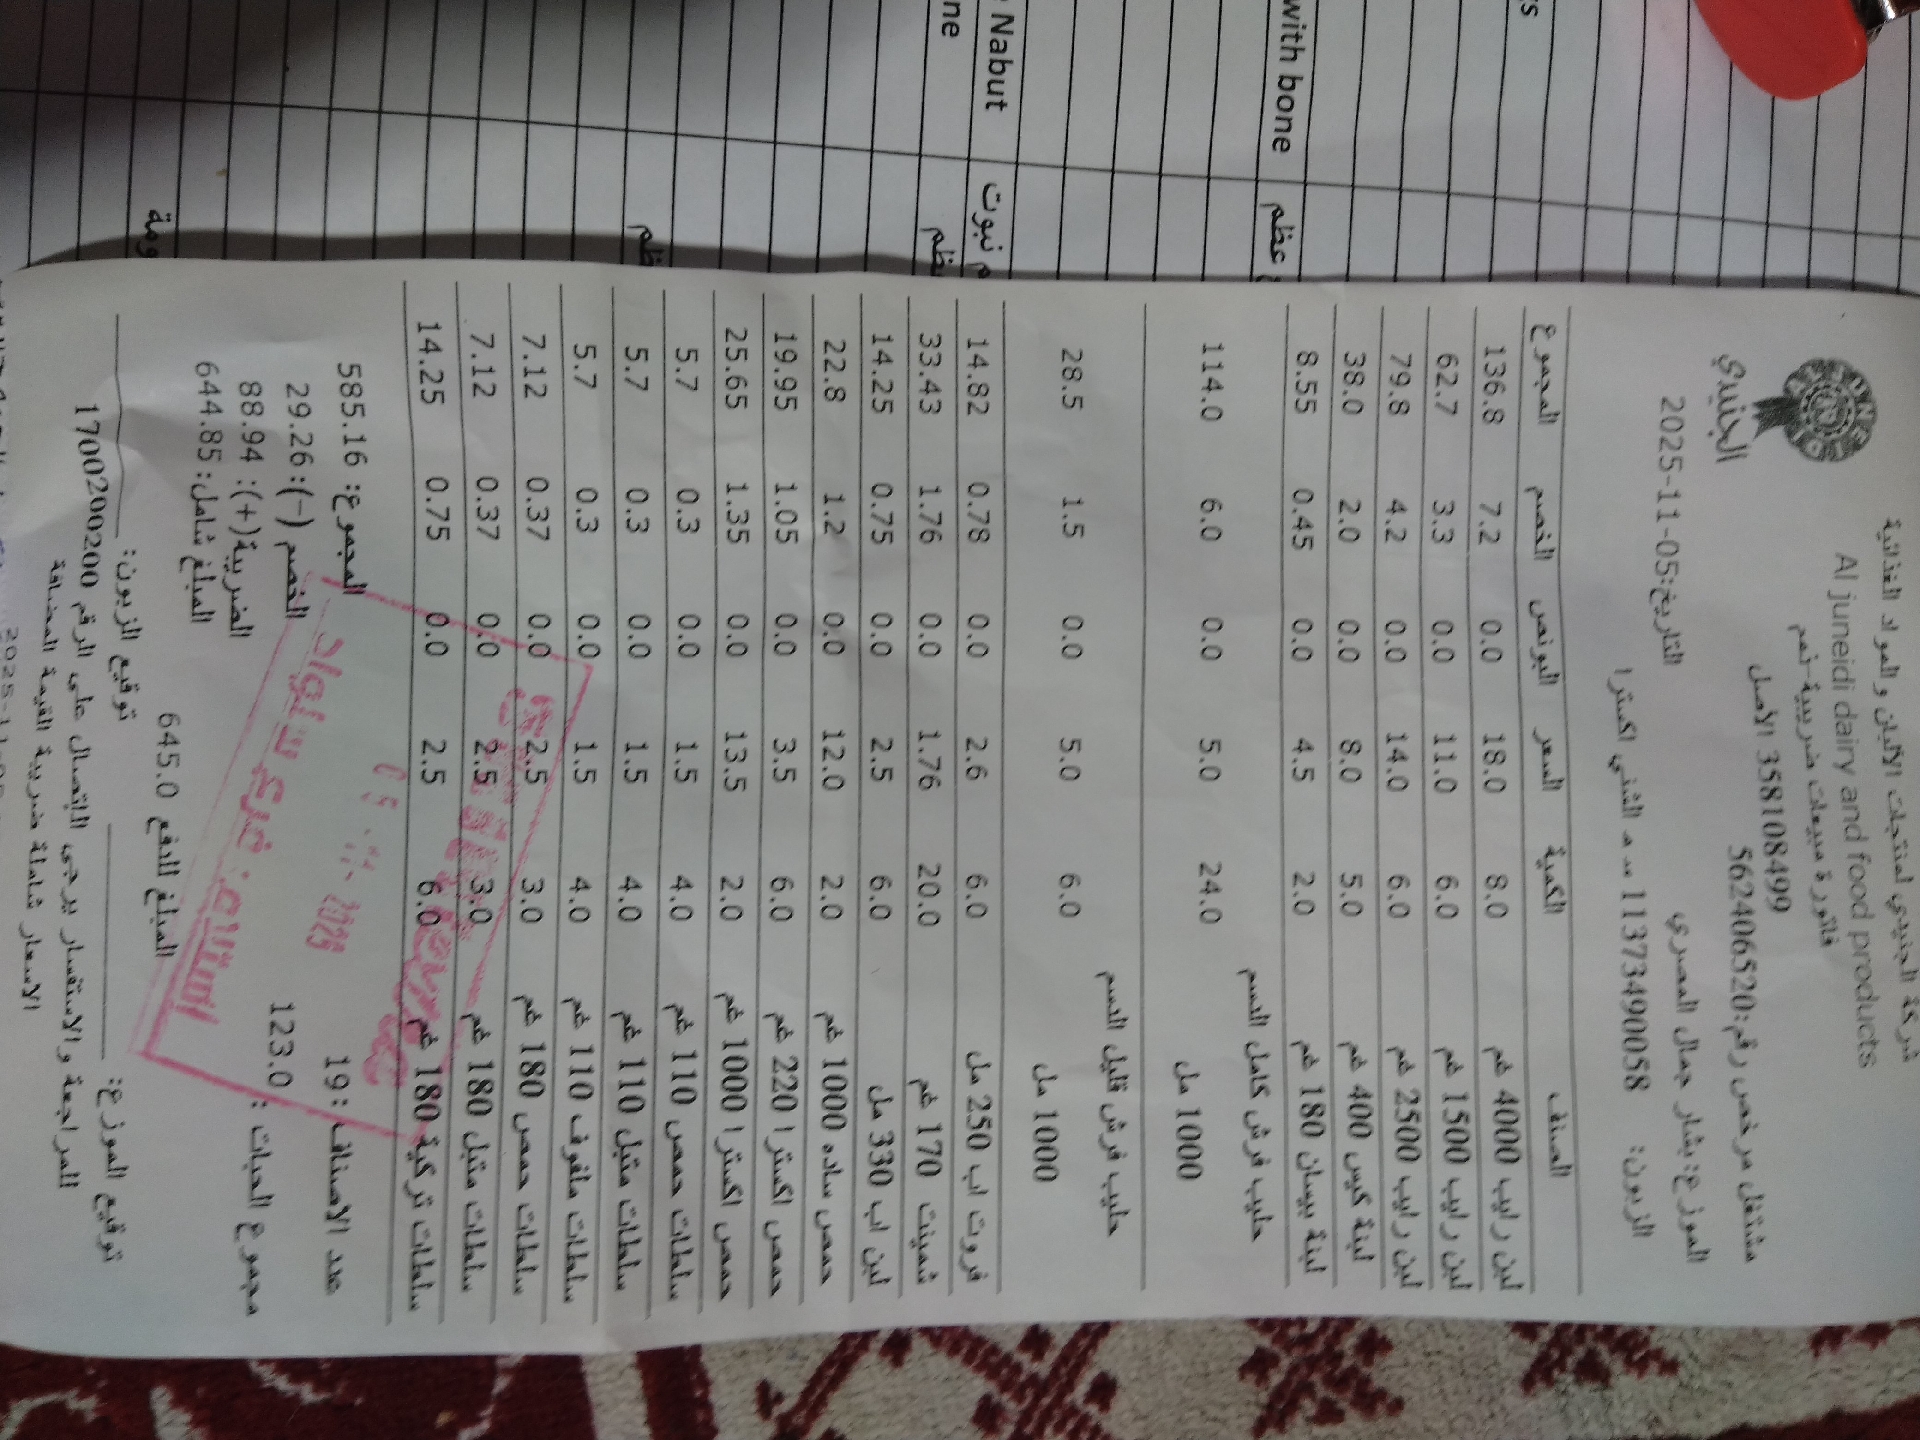 شركة الجنيدي لمنتجات الألبان و المواد الغذائية
Al juneidi dairy and food products
فاتورة مبيعات ضريبية-نعم
3581084499 الأصل
مشتغل مرخص رقم:562406520
الجنيدي
الموزع: بشار جمال المصري
التاريخ:05-11-2025
الزبون: 11373490058 سد الشني اكسترا
الصنف الكمية السعر البونص الخصم المجموع
لبن رايب 4000 غم 8.0 18.0 0.0 7.2 136.8
لبن رايب 1500 غم 6.0 11.0 0.0 3.3 62.7
لبن رايب 2500 غم 6.0 14.0 0.0 4.2 79.8
لبنة كيس 400 غم 5.0 8.0 0.0 2.0 38.0
لبنة بيسان 180 غم 2.0 4.5 0.0 0.45 8.55
حليب فرش كامل الدسم
1000 مل 24.0 5.0 0.0 6.0 114.0
حليب فرش قليل الدسم
1000 مل 6.0 5.0 0.0 1.5 28.5
فروت اب 250 مل 6.0 2.6 0.0 0.78 14.82
شمينت 170 غم 20.0 1.76 0.0 1.76 33.43
لبن اب 330 مل 6.0 2.5 0.0 0.75 14.25
حمص ساده 1000 غم 2.0 12.0 0.0 1.2 22.8
حمص اكسترا 220 غم 6.0 3.5 0.0 1.05 19.95
حمص اكسترا 1000 غم 2.0 13.5 0.0 1.35 25.65
سلطات حمص 110 غم 4.0 1.5 0.0 0.3 5.7
سلطات متبل 110 غم 4.0 1.5 0.0 0.3 5.7
سلطات ملفوف 110 غم 4.0 1.5 0.0 0.3 5.7
سلطات حمص 180 غم 3.0 2.5 0.0 0.37 7.12
سلطات متبل 180 غم 3.0 2.5 0.0 0.37 7.12
سلطات تركية 180 غم 6.0 2.5 0.0 0.75 14.25
عدد الاصناف : 19
المجموع: 585.16
مجموع الحبات : 123.0
الخصم (-): 29.26
الضريبة(+): 88.94
المبلغ شامل: 644.85
المبلغ للدفع 645.0
توقيع الموزع:
توقيع الزبون:
المراجعة و الاستفسار يرجى الإتصال على الرقم 1700200200
الاسعار شاملة ضريبة القيمة المضافة
استلام: فرع بلاعواد
2025
with bone
عظم
Nabut
نبوت
ne
ظم
ومة